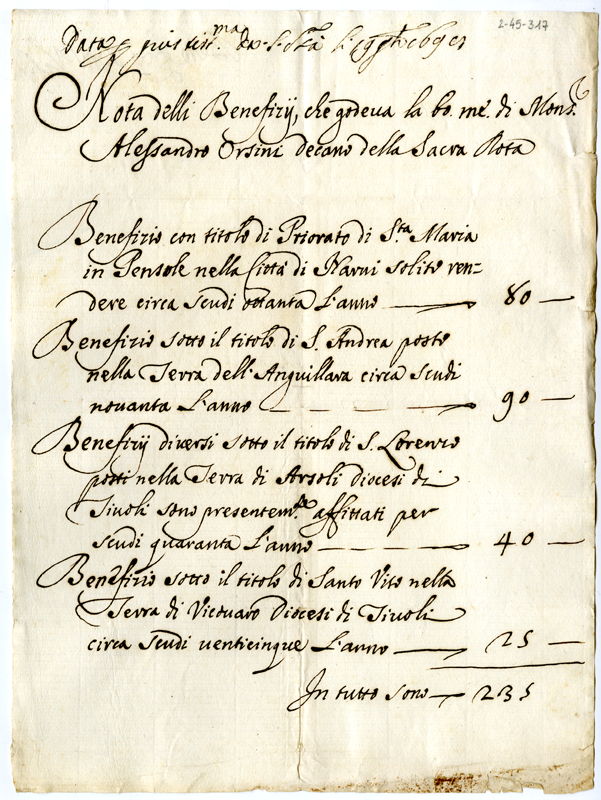 2-45-317
Nota delli Benefizij, che godeva la bo. me. di Mons.r
Alessandro Orsini decano della Sacra Rota
Benefizio con titolo di Priorato di S.ta Maria
in Pensole nella Città di Narni solito ren=
dere circa scudi ottanta l'anno — 80 —
Benefizio sotto il titolo di S. Andrea posto
nella Terra dell'Anguillara circa scudi
novanta l'anno — — — — 90 —
Benefizij diversi sotto il titolo di S. Lorenzo
posti nella Terra di Arsoli diocesi di
Tivoli sono presentem.te affittati per
scudi quaranta l'anno — — — 40 —
Benefizio sotto il titolo di Santo Vito nella
Terra di Vicovaro Diocesi di Tivoli
circa scudi venticinque l'anno — 25 —
In tutto sono — 235